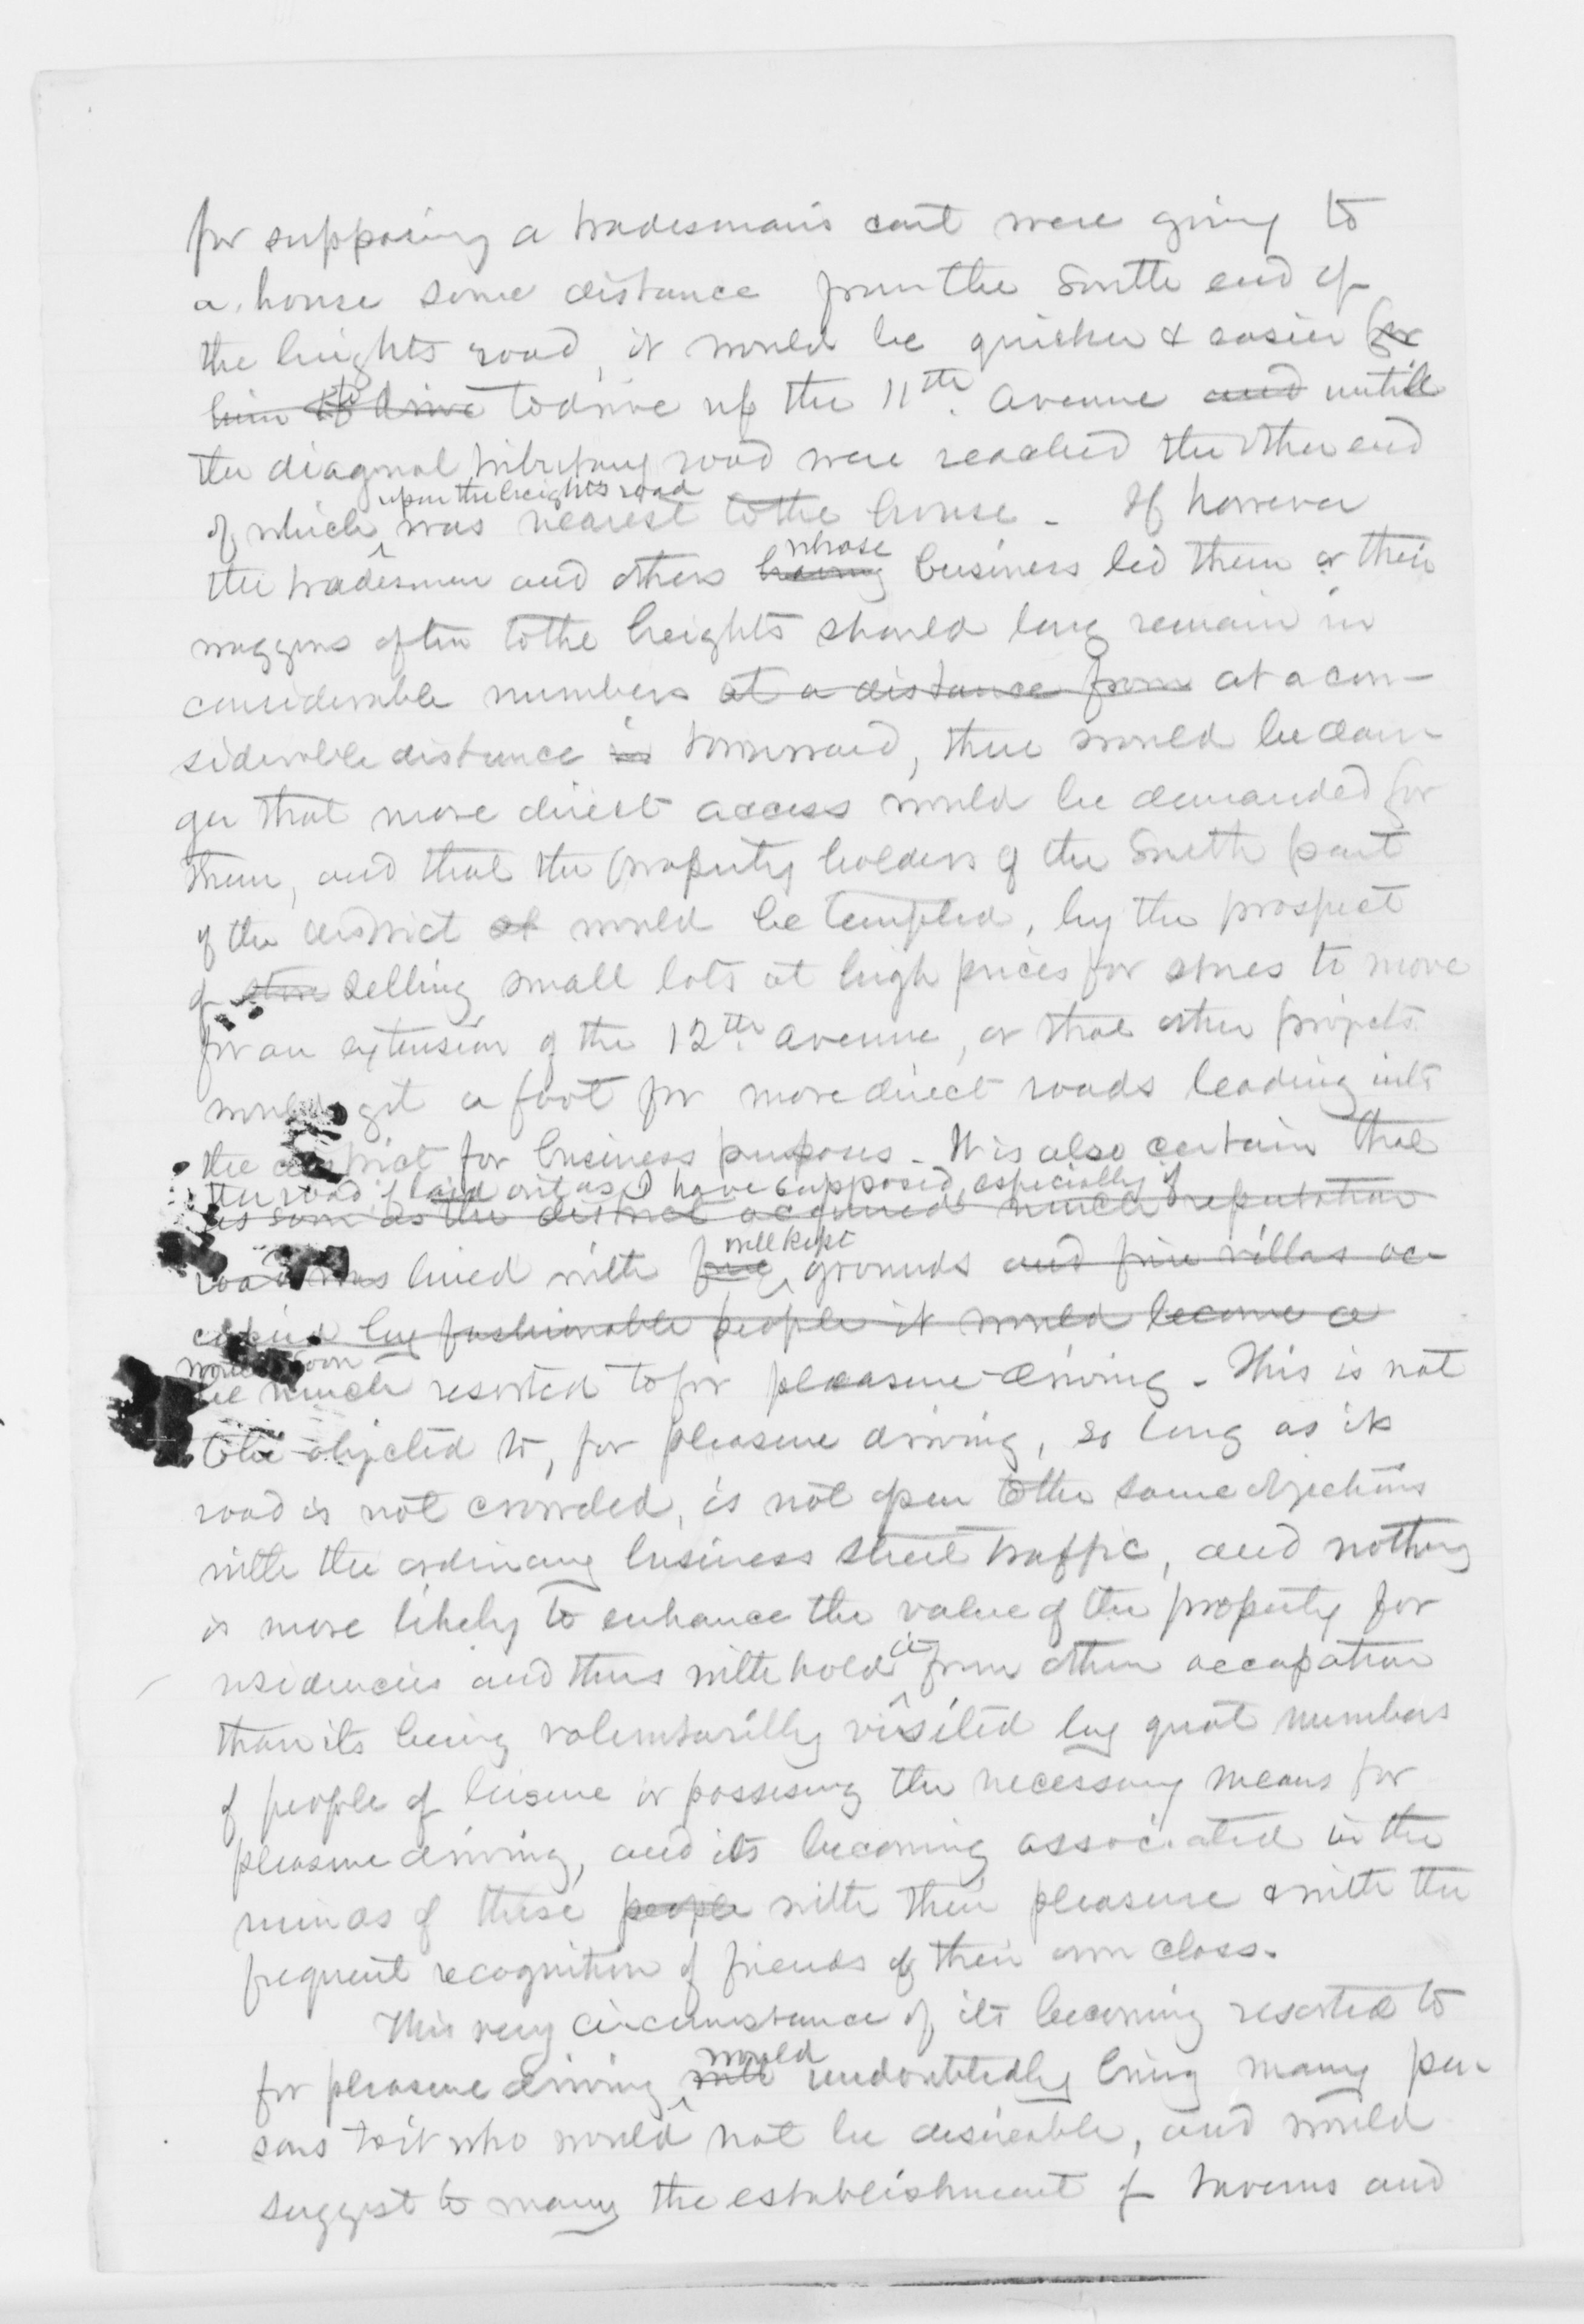 for supposing a tradesman's cart were going to
a house some distance from the South end of
the heights road, it would be quicker & easier for
him to drive to drive up the 11th. avenue and untill
the diagonal tributary road were reached the other end
upon the heights road
of which was nearest to the house - If however
whose
the tradesmen and others having business led them or their
waggons often to the heights should long remain in
considerable numbers at a distance from at a con-
siderable distance in townward, there would be dan-
ger that more direct access would be demanded for
them, and that the property holders of the South part
of the district of would be tempted, by the prospect
of store selling small lots at high prices for stores to move
for an extension of the 12th. avenue, or that other projects
would get a foot for more direct roads leading into
the district for business purposes - It is also certain that
the road if laid out as I have supposed, especially if
as soon as the district acquired much reputation
well kept
road was lined with fine grounds and fine villas oc-
cupied by fashionable people it would become a
would soon
be much resorted to for pleasure-driving - This is not
to be objected to, for pleasure driving, so long as its
road is not crowded, is not open to the same objections
with the ordinary business street traffic, and nothing
is more likely to enhance the value of the property for
it
residencies and thus withhold from other occupation
than its being voluntarilly visited by great numbers
of people of leisure or possessing the necessary means for
pleasure driving, and its becoming associated in the
minds of these people with their pleasure & with the
frequent recognition of friends of their own class.
This very circumstance of its becoming resorted to
would
for pleasure driving will undoubtedly bring many per-
sons to it who would not be desireable, and would
suggest to many the establishment of taverns and